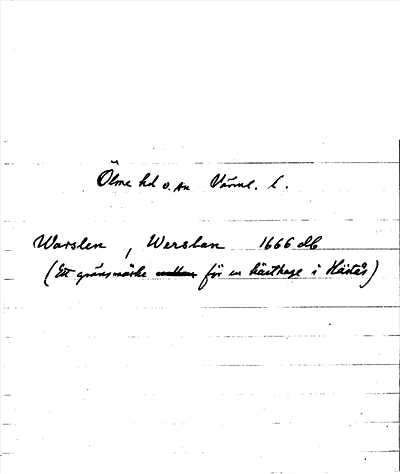 Ölme hd o. sn Värml. l.
Warslen, Werslan 1666 db
(Ett gränsmärke för en hästhage i Hästås)